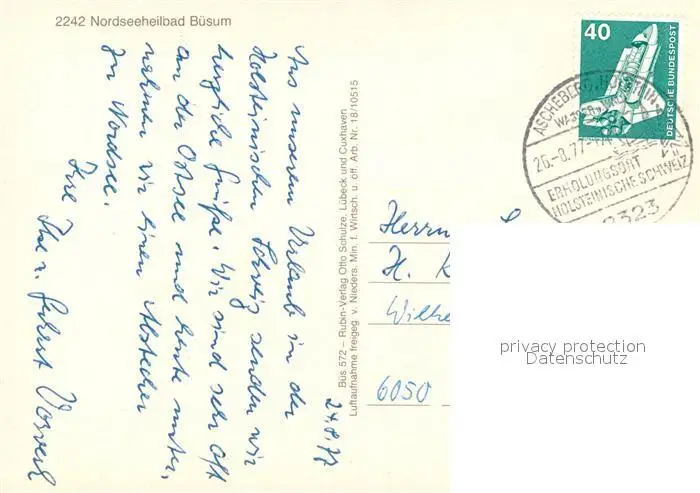 2242 Nordseeheilbad Büsum
Aus unserem Urlaub in der
Holsteinischen Schweiz senden wir
herzliche Grüße. Wir sind sehr oft
an der Ostsee und heute
nahmen wir einen Abstecher
zur Nordsee.
Ihre
24.8.77
Büs 572 – Rubin-Verlag Otto Schulze, Lübeck und Cuxhaven
Luftaufnahme freigeg. v. Nieders. Min. f. Wirtsch. u. öff. Arb. Nr. 18/10515
40
DEUTSCHE BUNDESPOST
ASCHEBERG, HOLSTEIN
26.-8.77
ERHOLUNGSORT
HOLSTEINISCHE SCHWEIZ
2323
Herrn
H. K
Wilhe
6050
privacy protection
Datenschutz